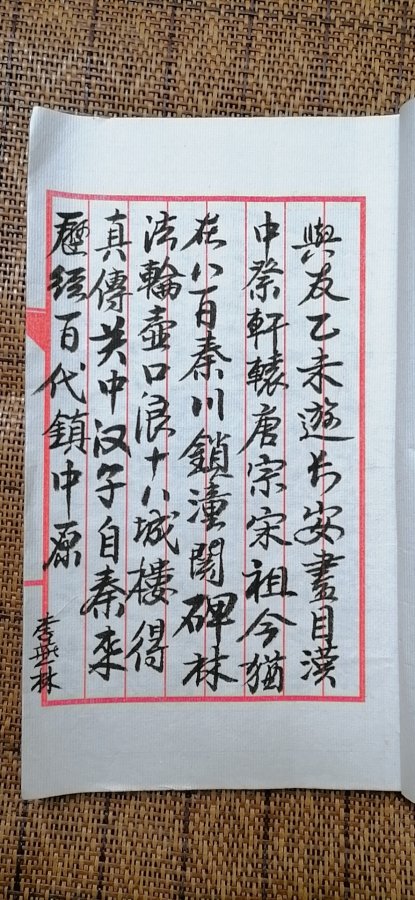 與友乙未遊长安畫目漢
中祭軒轅唐宗宋祖今猶
在八百秦川鎖潼関碑林
法輪壺口浪十八城樓得
真傳关中汉子自秦來
歷經百代鎮中原
李林